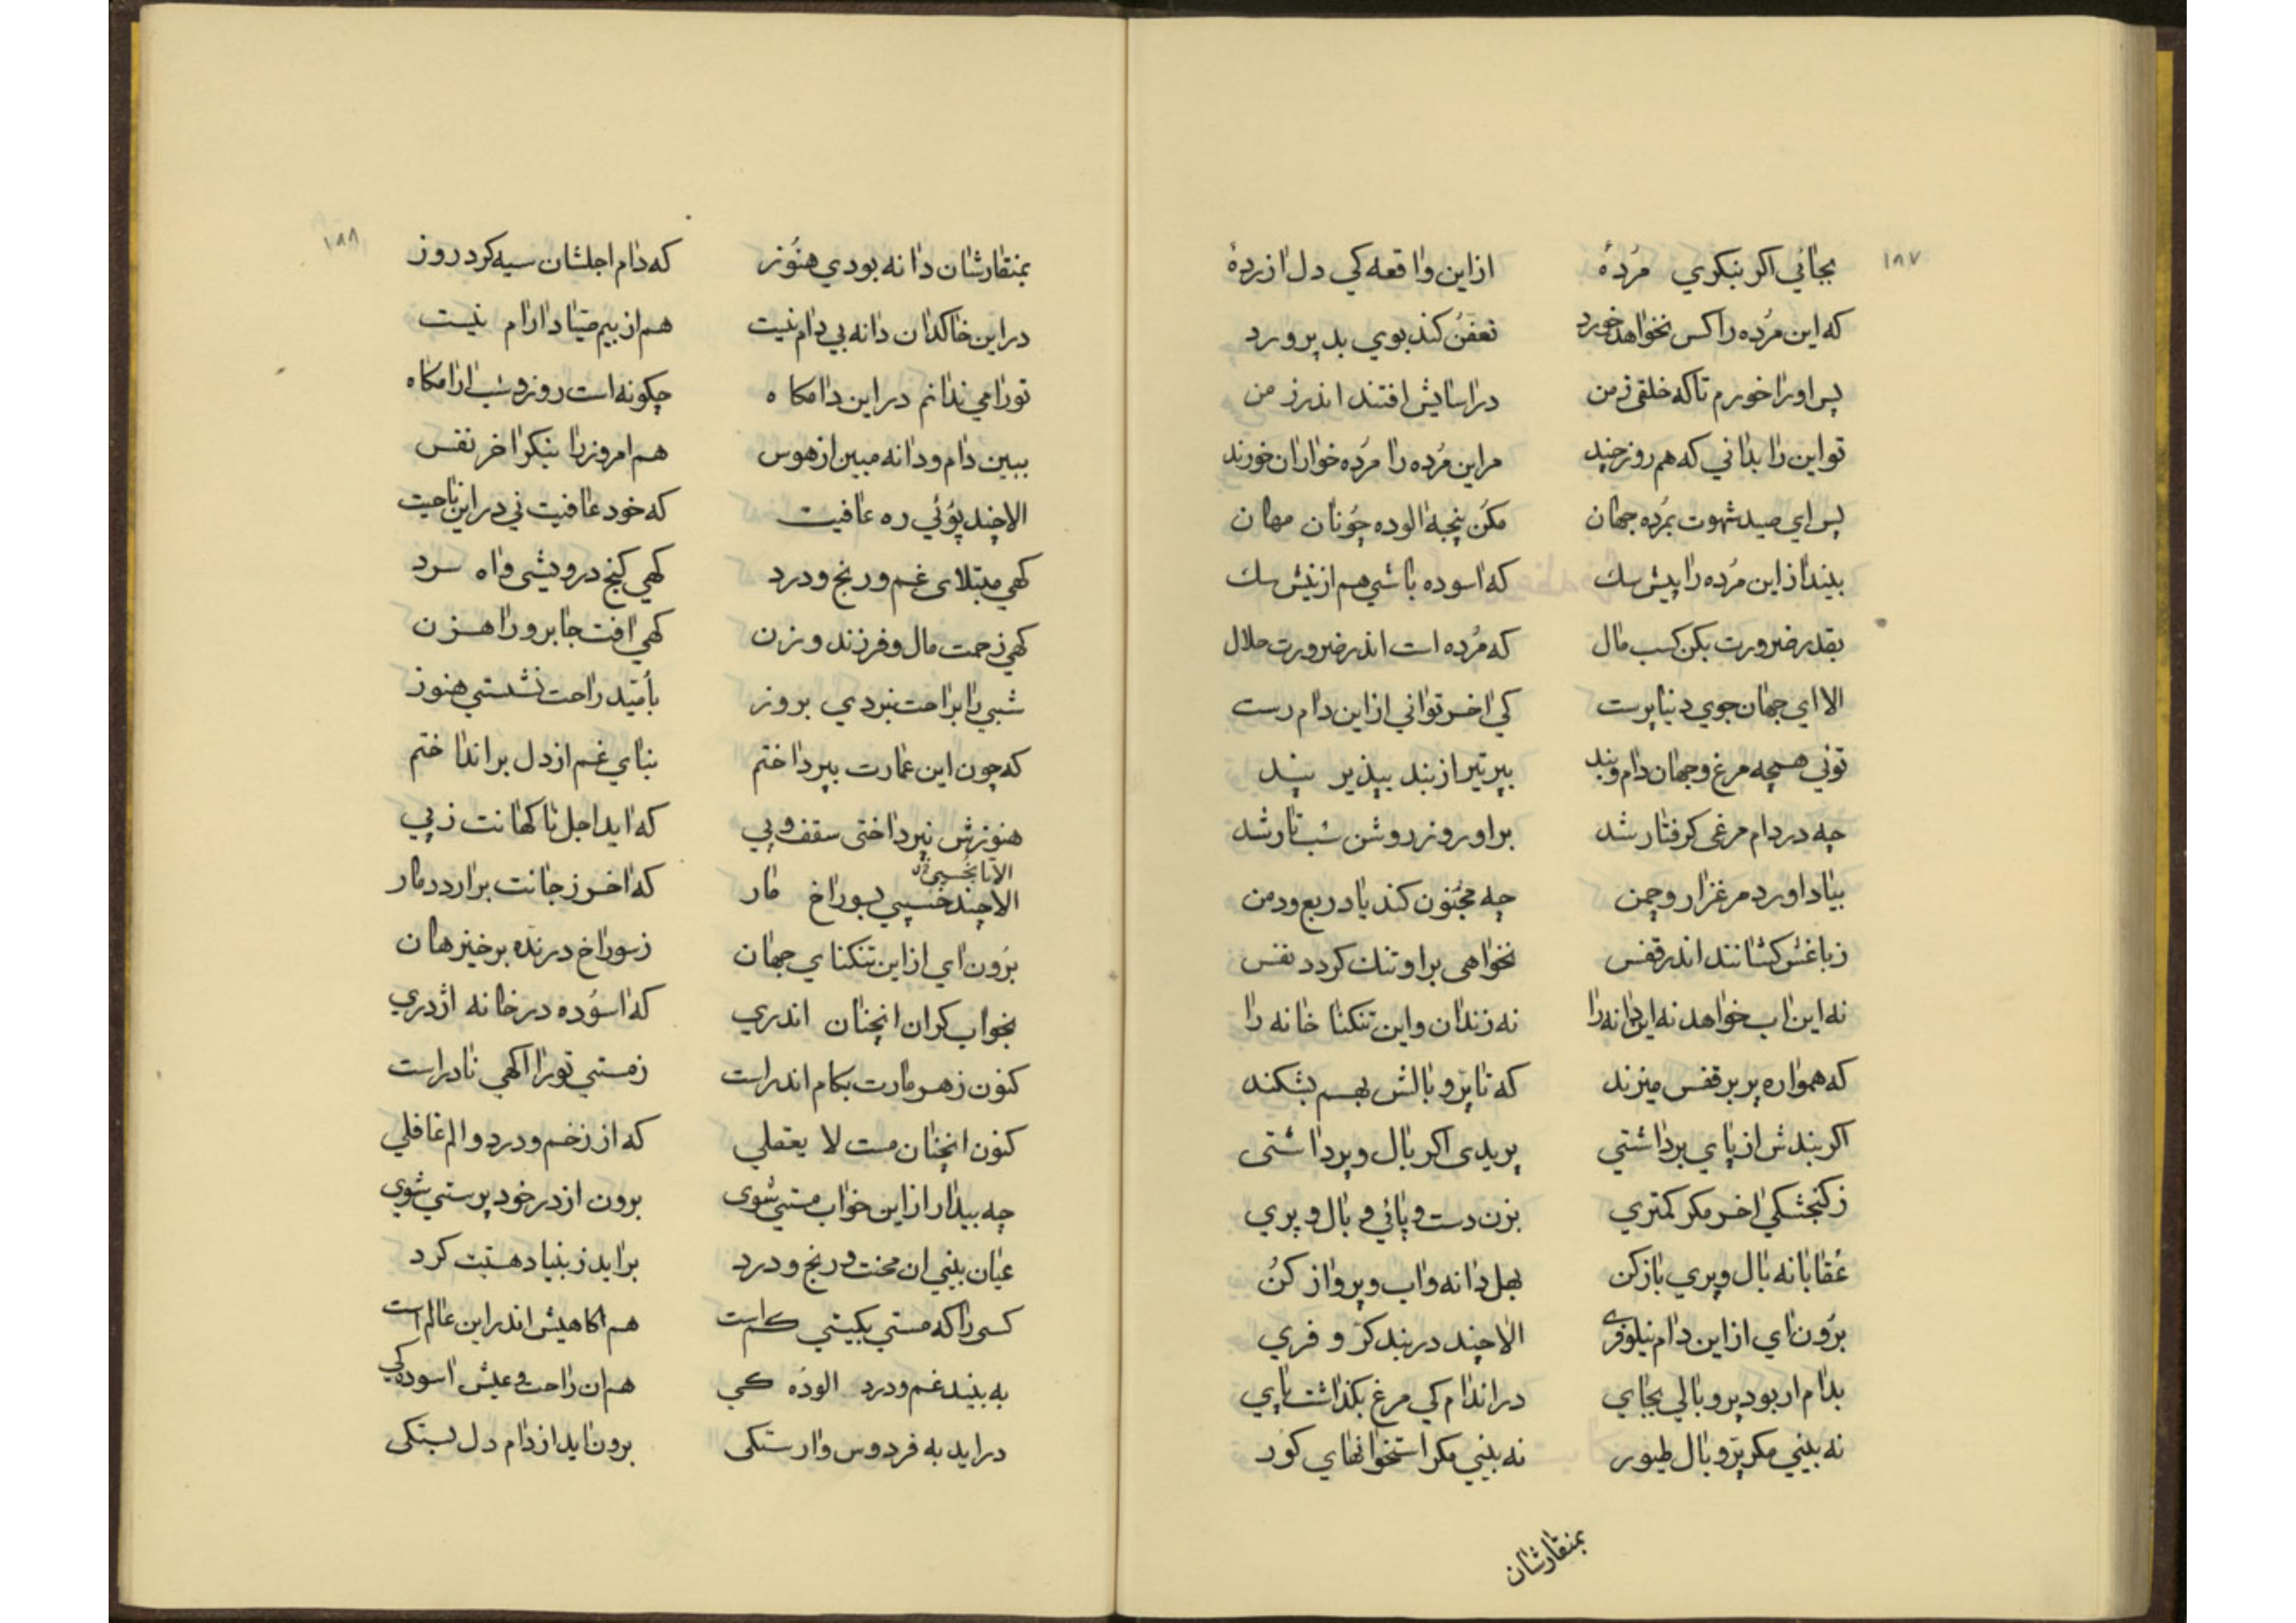 ۱۸۷
بجائی اکر بنکری مُردهٔ ازاین واقعه کی دل ازردهٔ
که این مُرده را کس نخواهد خورد تعفنُ کند بوی بد پرورد
پس اورا خورم تا که خلقی زمن دراسایش افتند اندر زمن
تو این را بدانی که هم روز چند مراین مُرده را مُرده خواران خورند
پس ای صید شهوت بمُرده جهان مکُن پنجه الوده چُونان مهان
بینداز این مُرده را پیش سك که اسوده باشی هم از نیش سك
بقدر ضرورت بکن کسب مال که مُرده است اندر ضرورت حلال
الا ای جهان جوی دنیا پرست کی اخر توانی ازاین دام رست
توئی همچه مرغ و جهان دام و بند بپرتیر از بند بپذیر پند
چه در دام مرغی کرفتار شد براو روز روشن شب تار شد
بیاد اورد مرغزار و چمن چه مجُنون کند یاد ربع و دمن
زباغش کشانند اندر قفس نخواهی براو تنك کردد نفس
نه این اب خواهد نه این دانه را نه زندان و این تنکنا خانه را
که همواره پر بر قفس میزند که تا پرّ و بالش بهم بشکند
اکر بندش از پای برداشتی پریدی اکر بال و پر داشتی
زکنجشکی اخر مکر کمتری بزن دست و پائی و بال و پری
عُقابانه بال و پری بازکن بهل دانه و اب و پرواز کنُ
برُون ای ازاین دام نیلوفری الا چند دربند کرّ و فری
بدام ار بود پر و بالی بجای دراندام کی مرغ بکذاشت پای
نه بینی مکر پرّ و بال طیور نه بینی مکر استخوانهای کور
بمنقارشان
۱۸۸
بمنقارشان دانه بودی هنُوز که دام اجلشان سیه کرد روز
دراین خاکدان دانه بی دام نیت هم از بیم صیّاد ارام نیست
تورا می ندانم دراین دامکاه چکونه است روز و شب ارامکاه
ببین دام و دانه مبین از هوس هم امروز را بنکر اخر نفس
الا چند پوُئی ره عافیت که خود عافیت نی دراین ناحیت
کهی مبتلای غم و رنج و درد کهی کنج درویشی و اه سرد
کهی زحمت مال و فرزند و زن کهی افت جابر و راهزن
شبی را براحت نبردی بروز باُمیّد راحت نشستی هنوز
که چون این عمارت بپرداختم بنای غم از دل برانداختم
هنوزش نپرداختی سقف و پی که اید اجل ناکهانت زپی
الا تا نخُسپی
الا چند خسپی بسوراخ مار که اخر زجانت برارد دمار
برُون ای ازاین تنکنای جهان زسوراخ درنده برخیز هان
بخواب کران انچنان اندری که اسوُده درخانه اژدری
کنون زهر مارت بکام اندر است زمستی تورا اکهی نادر است
کنون انچنان مست لا یعقلی که از زخم و درد و الم غافلی
چه بیدار ازاین خواب مستی شوی برون ازدر خود پرستی شوی
عیان بینی ان محنت و رنج و درد براید زبنیاد هستیت کرد
کسی را که مستی بکیتی کم است هم اکاهیش اندراین عالم است
به بیند غم و درد الودُه کی هم ان راحت و عیش اسوده کی
دراید به فردوس وارستکی برون اید از دام دل بستکی